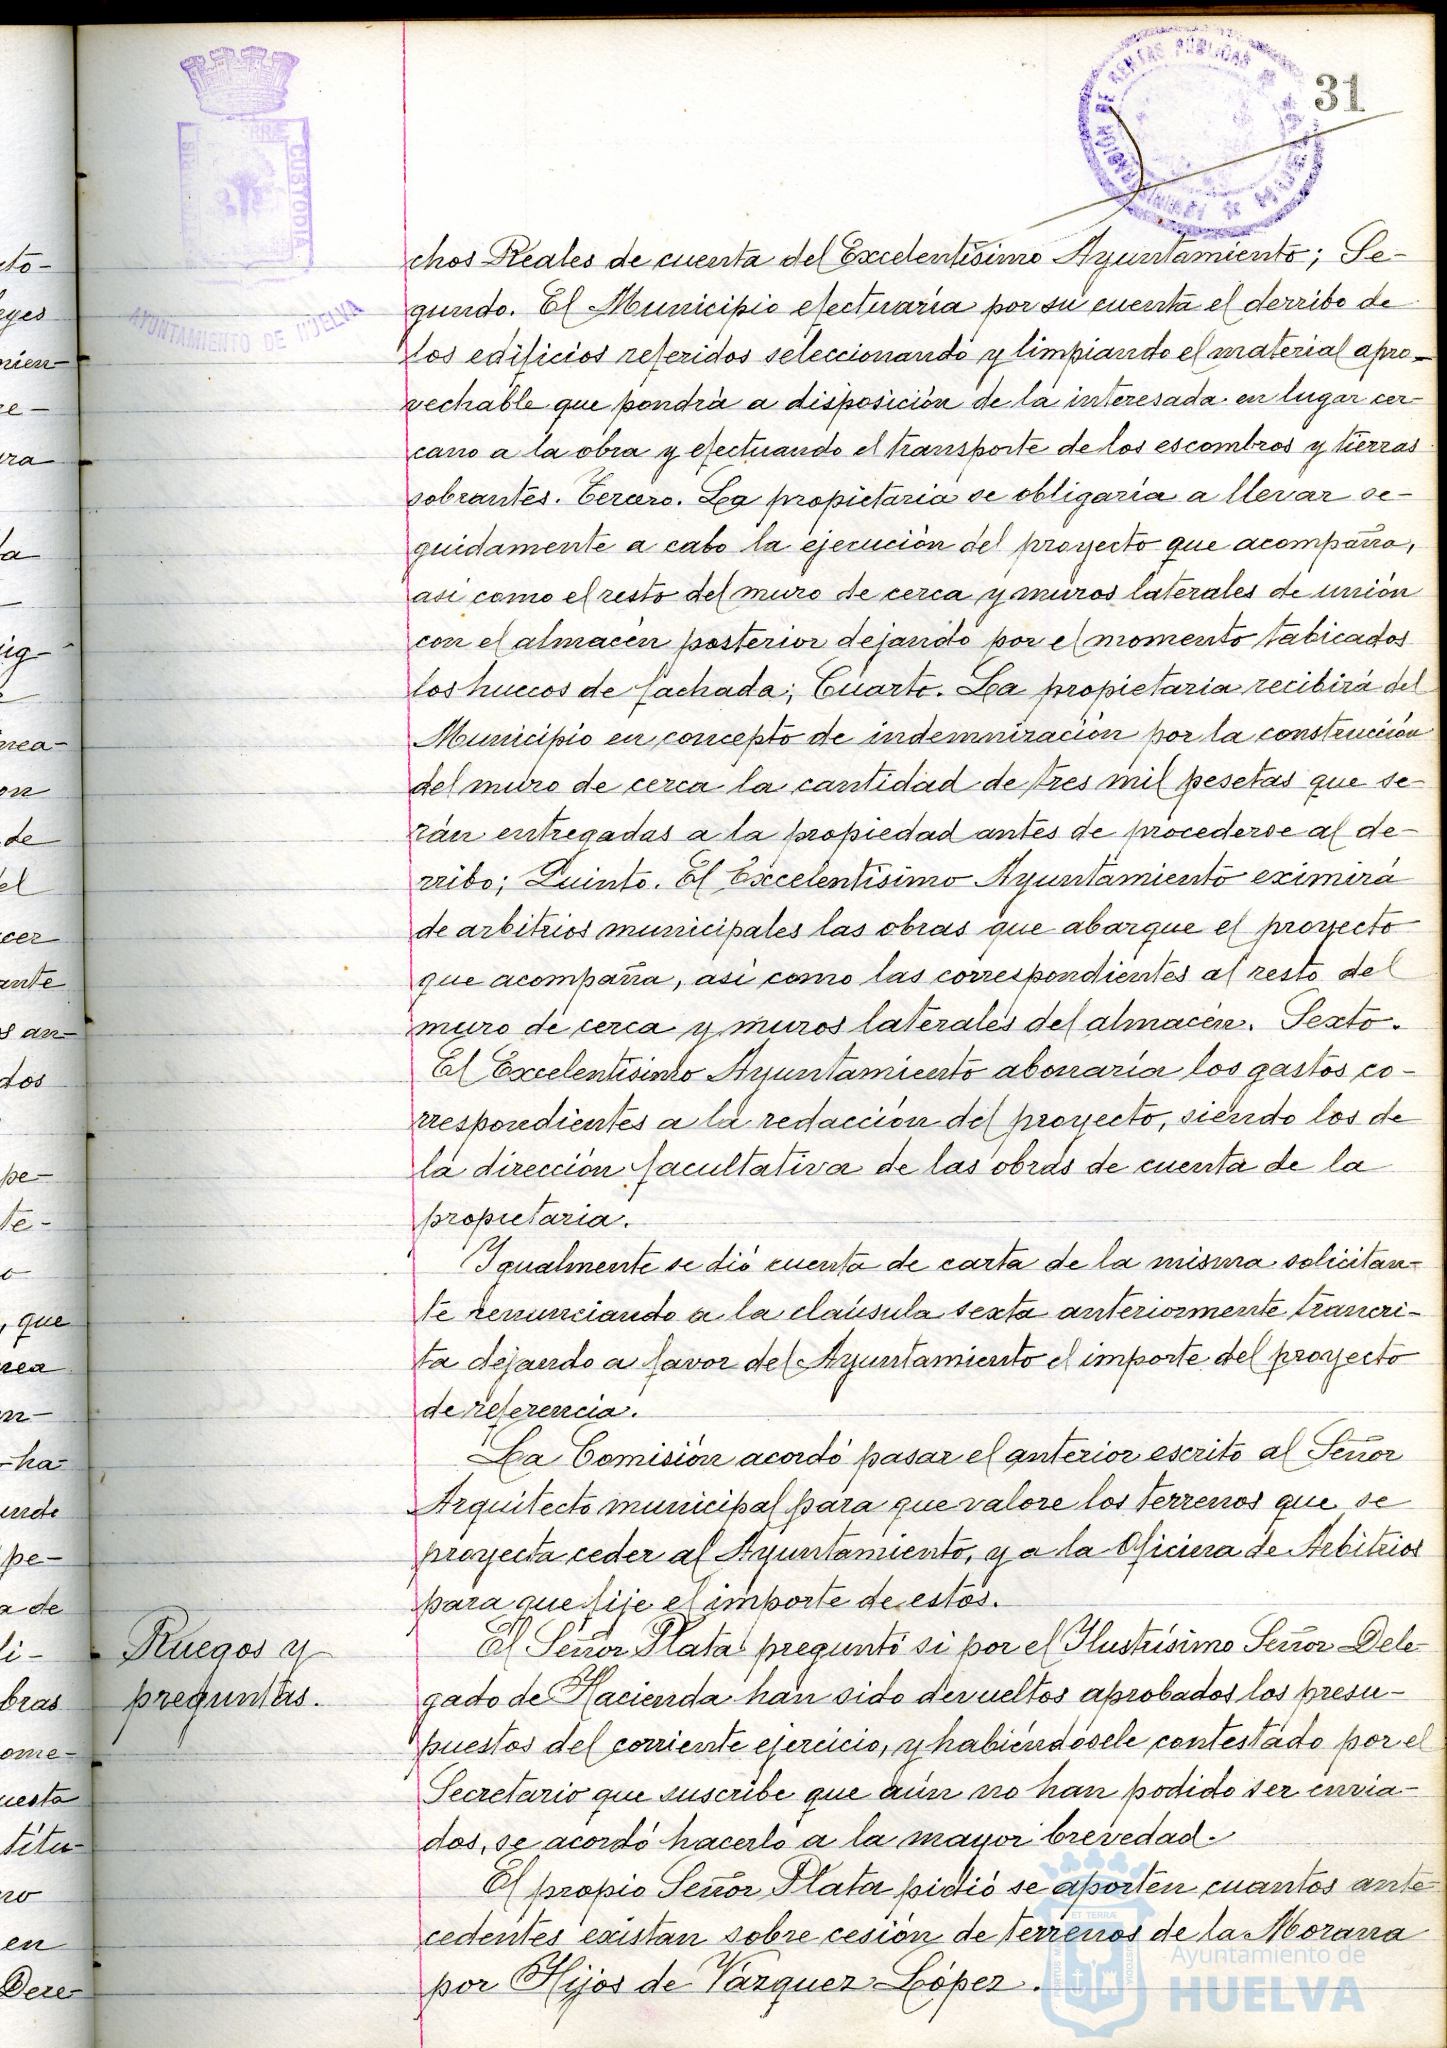 31
ADMINISTRACIÓN DE RENTAS PUBLICAS
HUELVA
TERRÆ
CUSTODIA
AYUNTAMIENTO DE HUELVA
chos Reales de cuenta del Excelentísimo Ayuntamiento; Se-
gundo. El Municipio efectuaría por su cuenta el derribo de
los edificios referidos seleccionando y limpiando el material apro-
vechable que pondrá a disposición de la interesada en lugar cer-
cano a la obra y efectuando el transporte de los escombros y tierras
sobrantes. Tercero. La propietaria se obligaría a llevar se-
guidamente a cabo la ejecución del proyecto que acompaña,
así como el resto del muro de cerca y muros laterales de unión
con el almacén posterior dejando por el momento tabicados
los huecos de fachada; Cuarto. La propietaria recibirá del
Municipio en concepto de indemnización por la construcción
del muro de cerca la cantidad de tres mil pesetas que se-
rán entregadas a la propiedad antes de procederse al de-
rribo; Quinto. El Excelentísimo Ayuntamiento eximirá
de arbitrios municipales las obras que abarque el proyecto
que acompaña, así como las correspondientes al resto del
muro de cerca y muros laterales del almacén. Sexto.
El Excelentísimo Ayuntamiento abonaría los gastos co-
rrespondientes a la redacción del proyecto, siendo los de
la dirección facultativa de las obras de cuenta de la
propietaria.
Igualmente se dió cuenta de carta de la misma solicitan-
te renunciando a la claúsula sexta anteriormente trancri-
ta dejando a favor del Ayuntamiento el importe del proyecto
de referencia.
La Comisión acordó pasar el anterior escrito al Señor
Arquitecto municipal para que valore los terrenos que se
proyecta ceder al Ayuntamiento, y a la Oficina de Arbitrios
para que fije el importe de estos.
Ruegos y
preguntas.
El Señor Plata preguntó si por el Ilustrísimo Señor Dele-
gado de Hacienda han sido devueltos aprobados los presu-
puestos del corriente ejercicio, y habiéndosele contestado por el
Secretario que suscribe que aún no han podido ser envia-
dos, se acordó hacerlo a la mayor brevedad.
El propio Señor Plata pidió se aporten cuantos ante-
cedentes existan sobre cesión de terrenos de la Morana
por Hijos de Vázquez López.
Ayuntamiento de
HUELVA